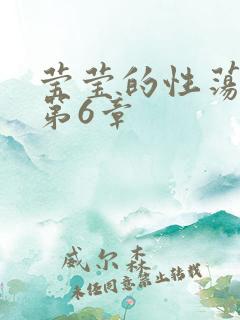 莹莹的性荡
第6章
威尔森
未经同意禁止转载